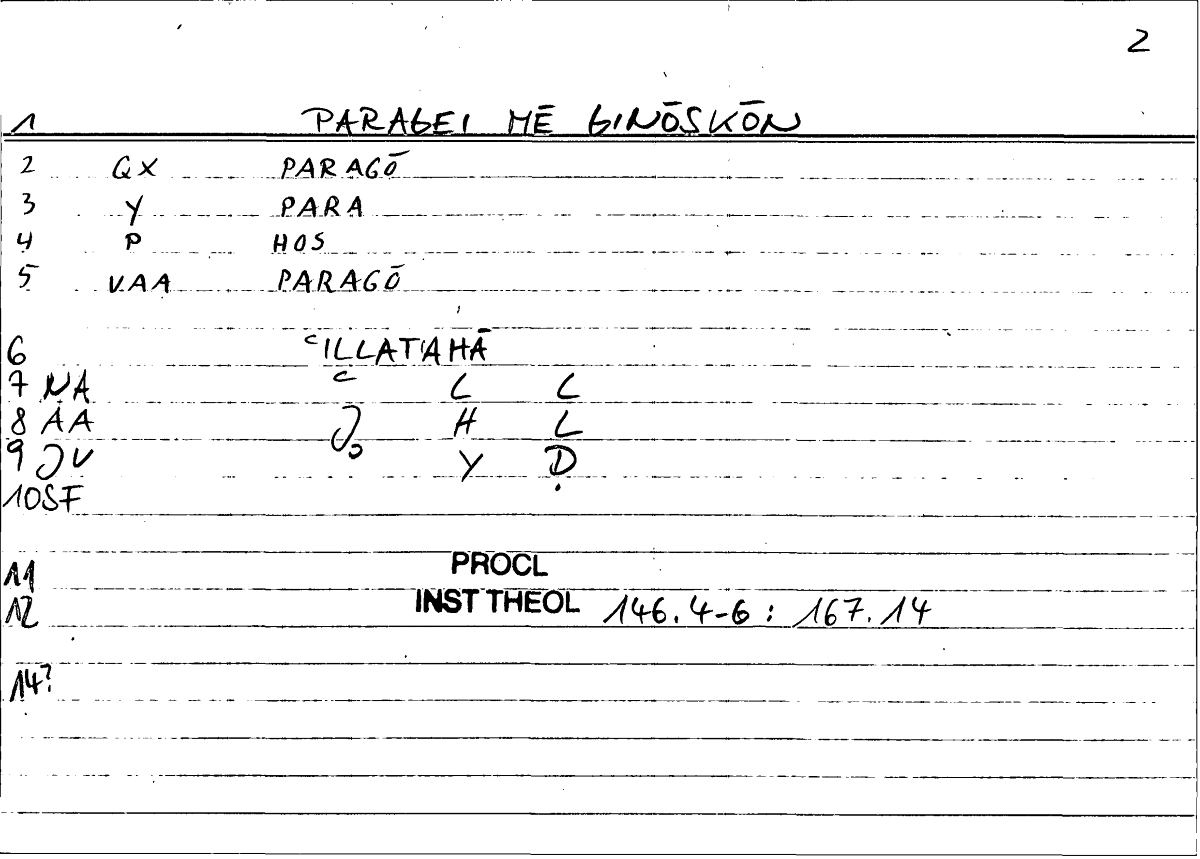 2
1 PARAGEI MĒ GINŌSKŌN
2 QX PARAGŌ
3 Y PARA
4 P HOS
5 VAA PARAGŌ
6 ʿILLATAHĀ
7 NA ʿ L L
8 AA Ǧ H L
9 JV Y Ḍ
10 SF
11 PROCL
12 INST THEOL 146.4-6 : 167.14
14?